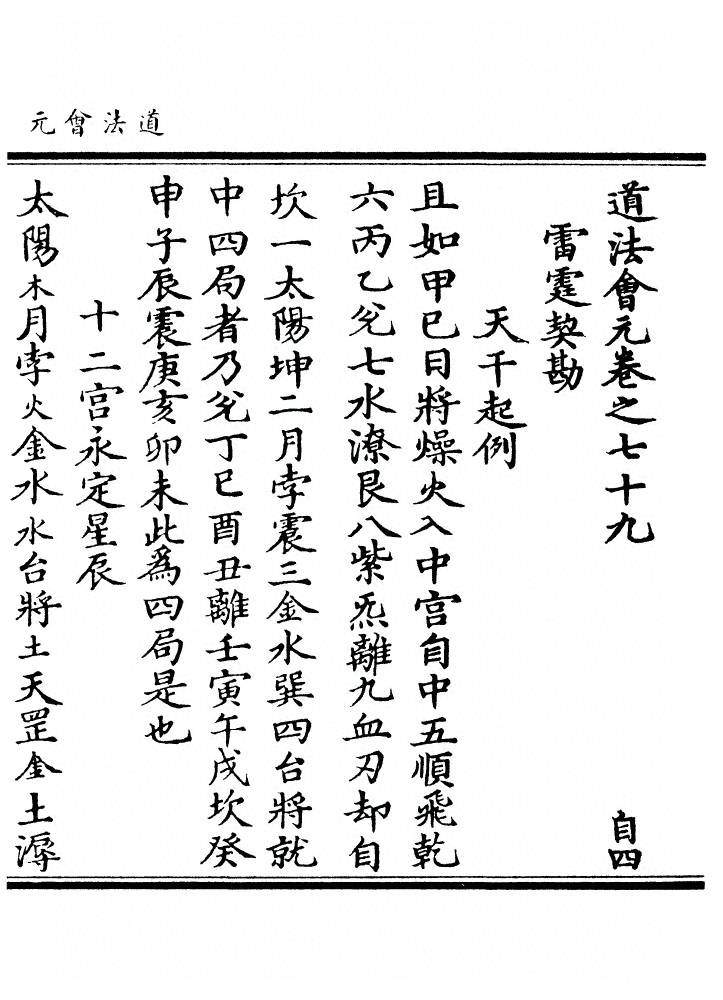 道法會元
道法會元卷之七十九 自四
雷霆契勘
天干起例
且如甲巳日將燥火入中宮自中五順飛乾
六丙乙兊七水潦艮八紫炁離九血刃却自
坎一太陽坤二月孛震三金水巽四台將就
中四局者乃兊丁巳酉丑離壬寅午戌坎癸
申子辰震庚亥卯未此爲四局是也
十二宮永定星辰
太陽木月孛火金水水台將土天罡金土潺